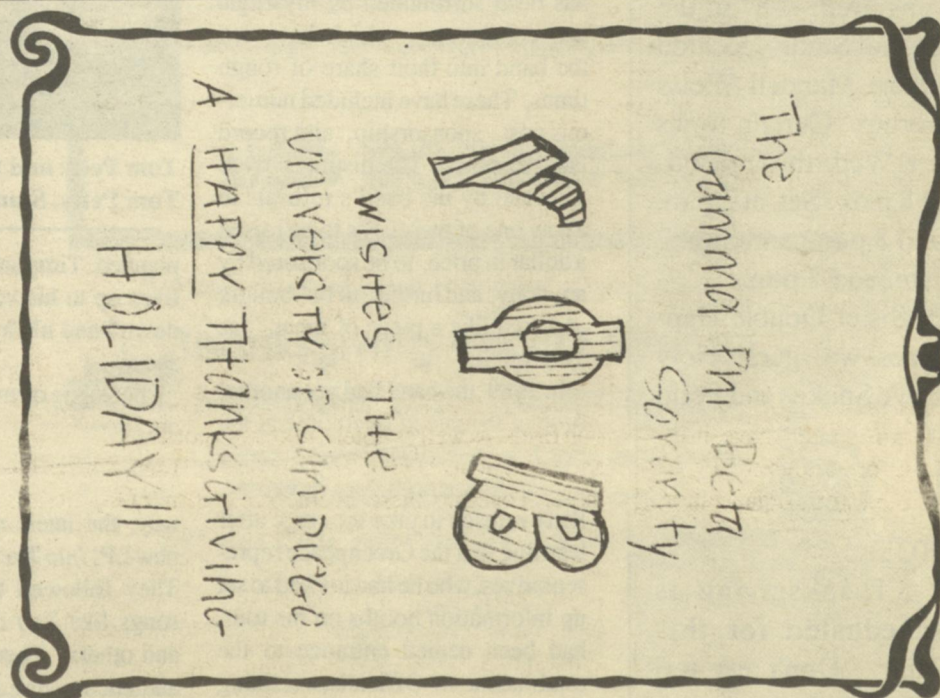 The
Gamma Phi Beta
Sorority
Γ Φ B
WICHES THE
UNIVERSITY of SAN DIEGO
A HAPPY THANKSGIVING
HOLIDAY!!